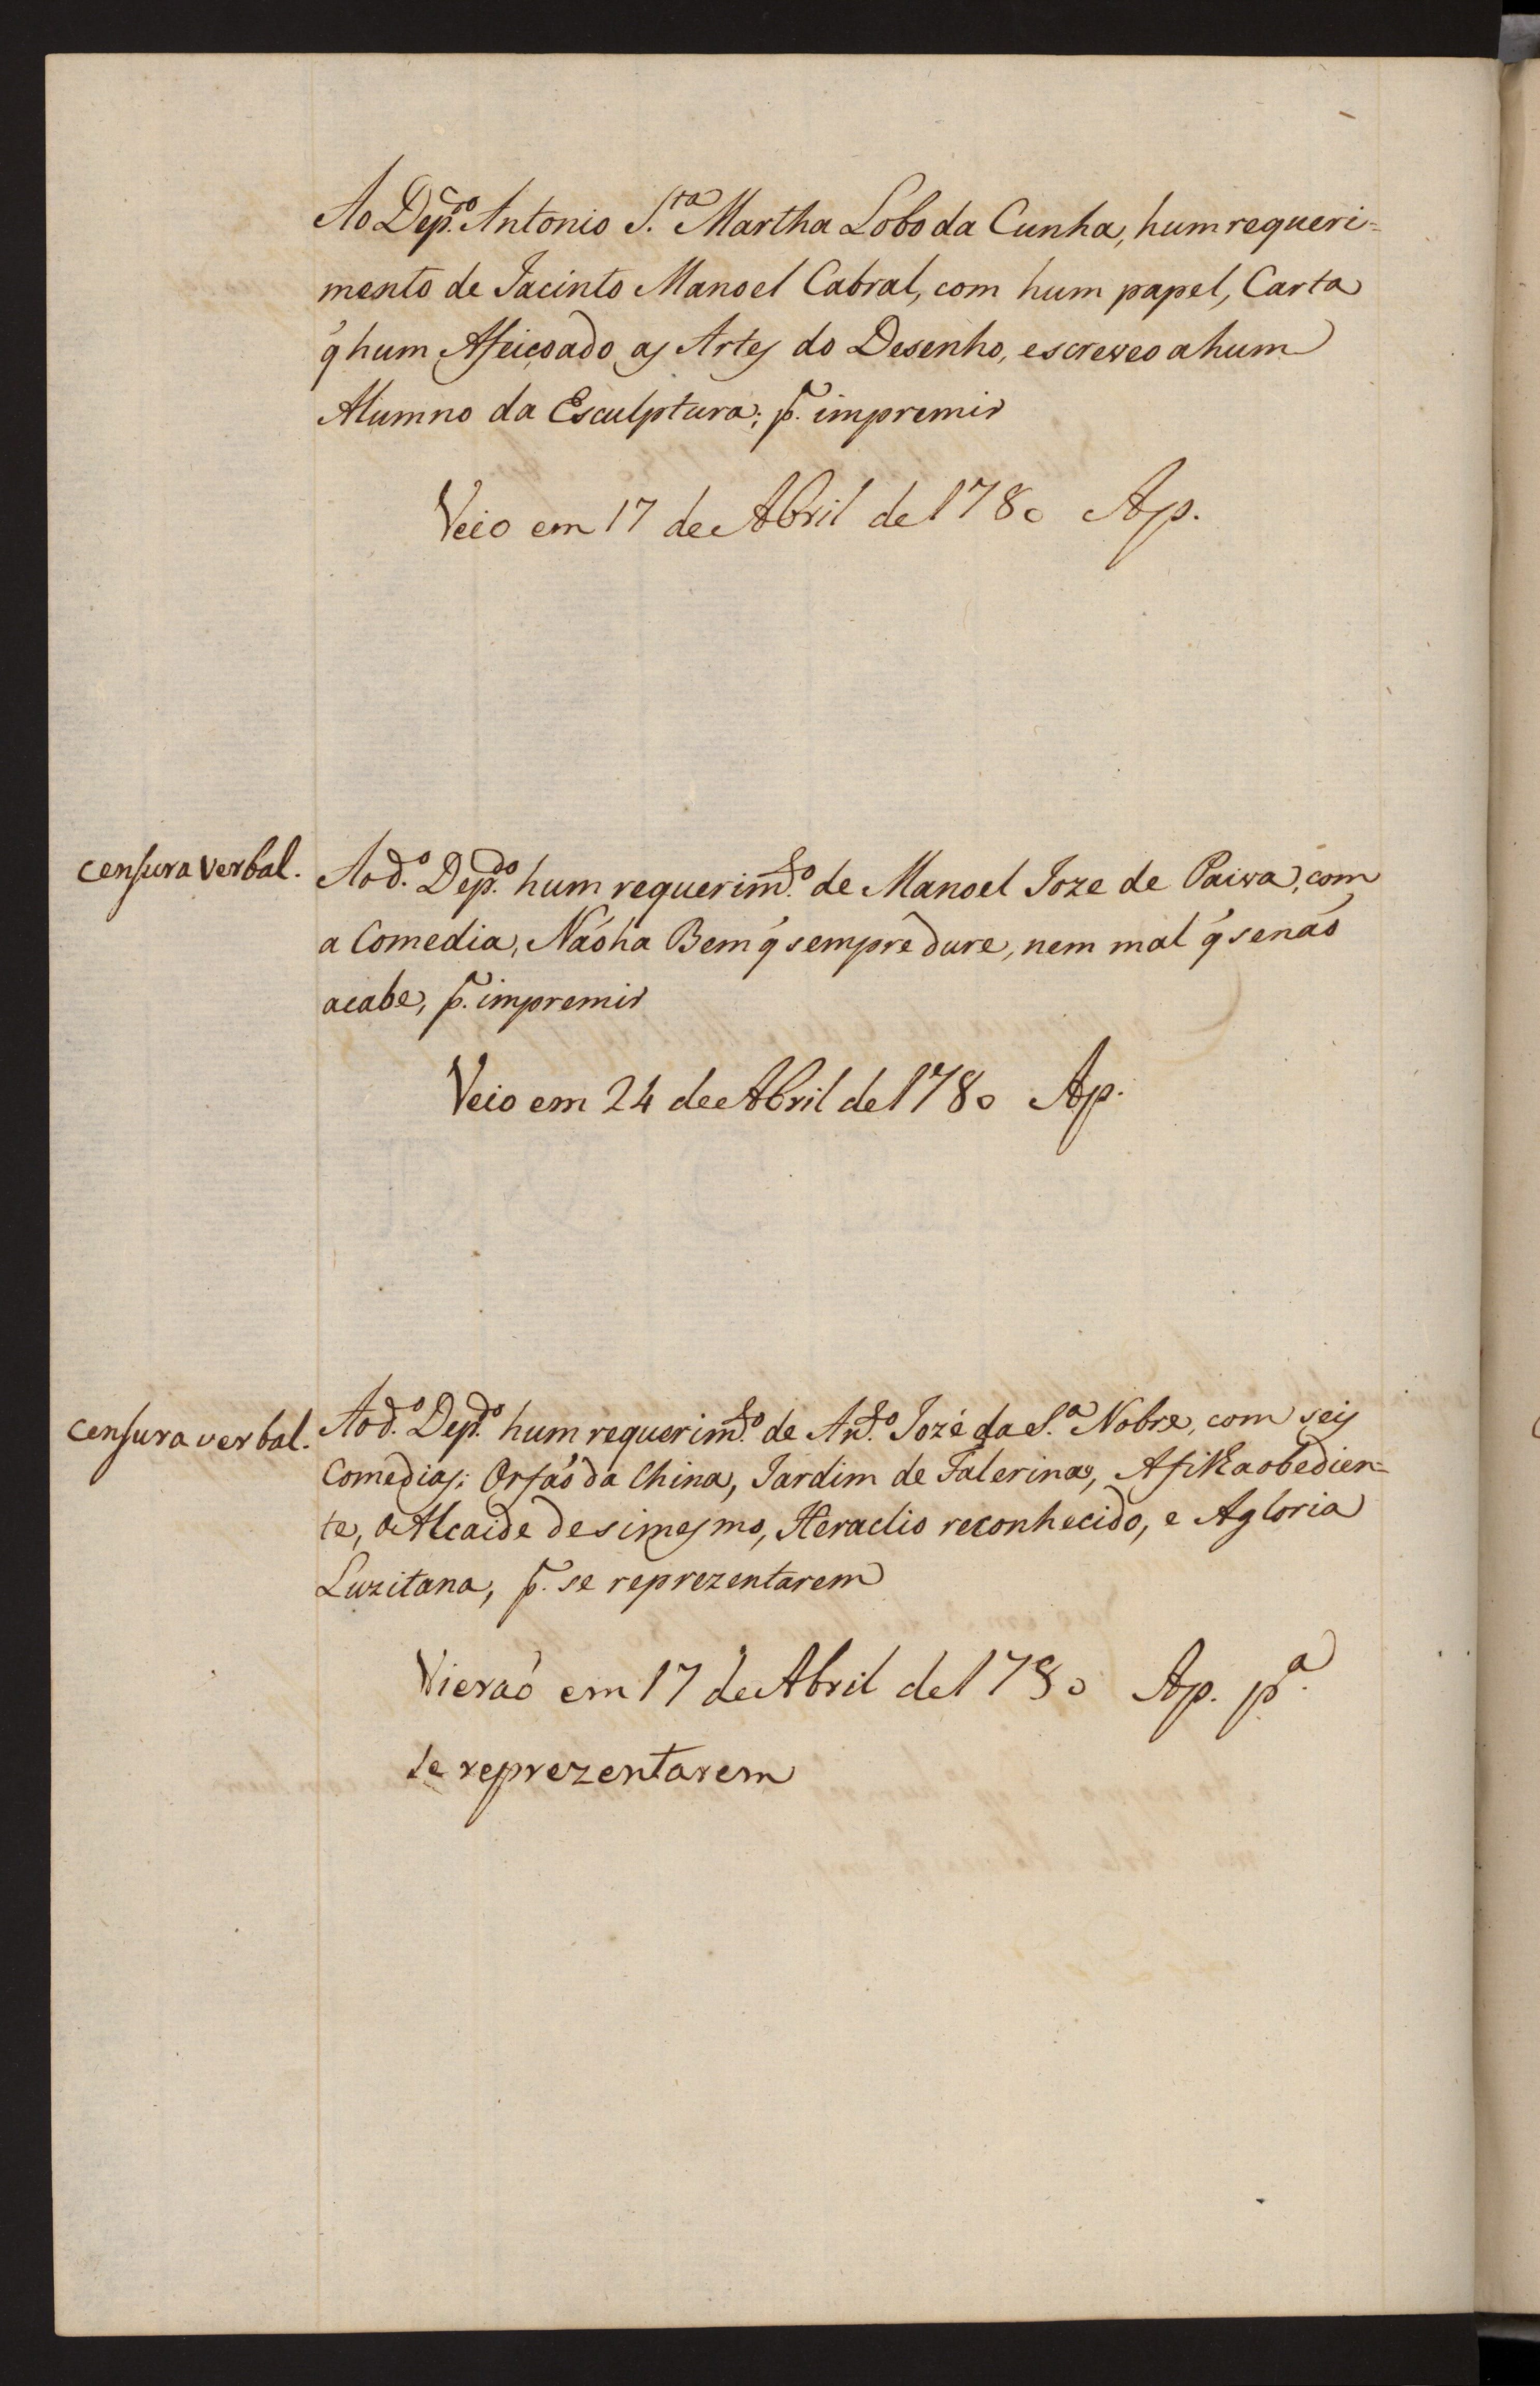 Ao Dep.do Antonio S.ta Martha Lobo da Cunha, hum requeri=
mento de Jacinto Manoel Cabral, com hum papel, Carta
q̃ hum Afeiçoado as Artes do Desenho, escreveo a hum
Alumno da Esculptura; p.a impremir
Veio em 17 de Abril de 1780 Ap.
Censura verbal.
Ao d.o Dep.do hum requerim.to de Manoel Joze de Paiva, com
a Comedia, Naõ ha Bem q̃ sempre dure, nem mal q̃ se naõ
acabe, p.a impremir
Veio em 24 de Abril de 1780 Ap.
Censura verbal.
Ao d.o Dep.do hum requerim.to de An.to Jozé da S.a Nobre, com seis
Comedias; Orfaõ da China, Jardim de Falerina, A filha obedien=
te, O Alcaide de si mesmo, Heraclio reconhecido, e A gloria
Luzitana, p.a se reprezentarem
Vieraõ em 17 de Abril de 1780 Ap. p.a
se reprezentarem